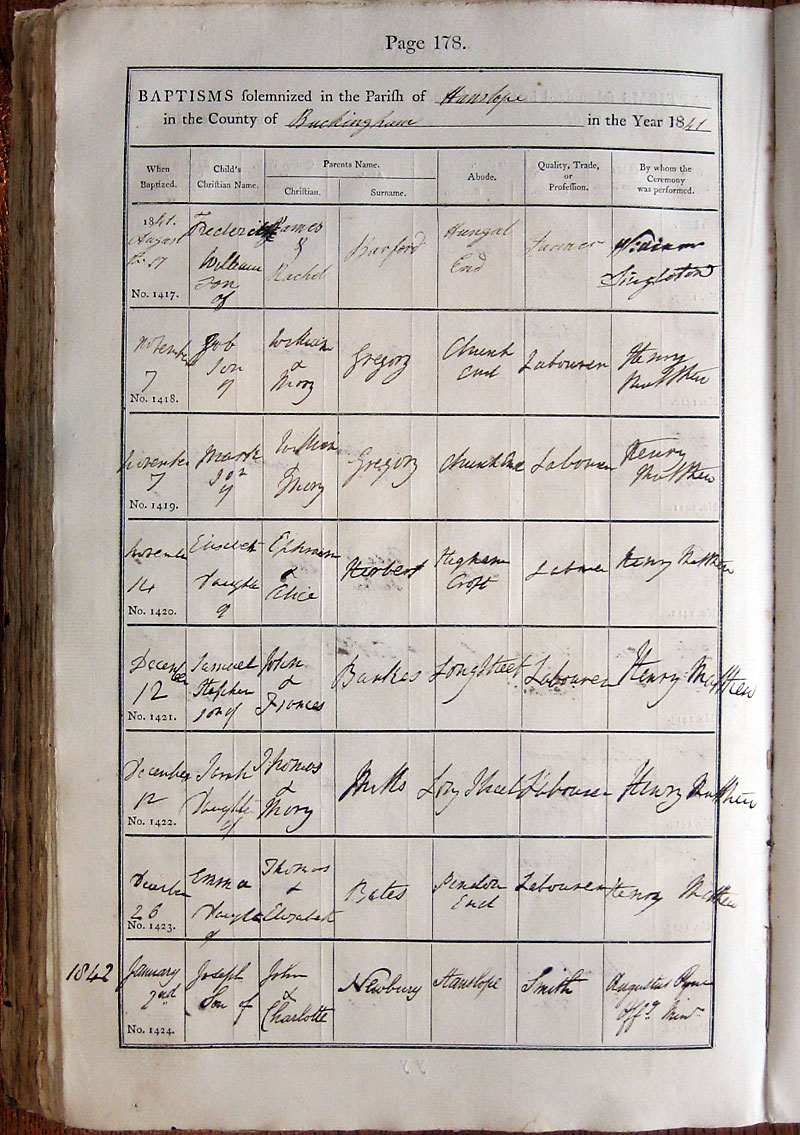 Page 178.
BAPTISMS solemnized in the Parish of Hanslope
in the County of Buckingham in the Year 1841
When Baptized.
Child's Christian Name.
Parents Name.
Christian.
Surname.
Abode.
Quality, Trade, or Profession.
By whom the Ceremony was performed.
1841.
August
No. 1417.
Frederick
William
Son
of
James
&
Rachel
Barford
Hungat
End
Farmer
William
Singleton
November
7
No. 1418.
Job
Son
of
William
&
Mary
Gregory
Church
End
Labourer
Henry
Matthew
November
7
No. 1419.
Mark
Son
of
William
&
Mary
Gregory
Church End
Labourer
Henry
Matthew
November
14
No. 1420.
Elizabeth
Daughter
of
Ephraim
&
Alice
Herbert
Higham
Croft
Labourer
Henry Matthew
December
12
No. 1421.
Samuel
Stephen
Son of
John
&
Frances
Barkes
Long Street
Labourer
Henry Matthew
December
12
No. 1422.
Sarah
Daughter
of
Thomas
&
Mary
Mills
Long Street
Labourer
Henry Matthew
December
26
No. 1423.
Emma
Daughter
of
Thomas
&
Elizabeth
Bates
End
Labourer
Henry Matthew
1842
January
2nd
No. 1424.
Joseph
Son of
John
&
Charlotte
Newbury
Hanslope
Smith
Augustus
Offg. Minr.